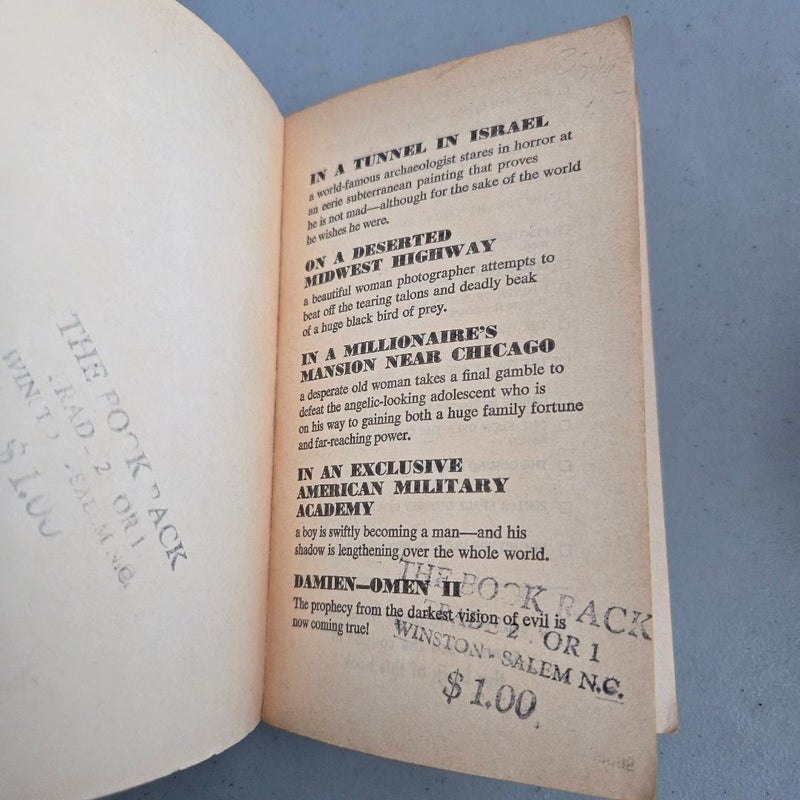 THE BOOK RACK
TRADE 2 FOR 1
WINSTON - SALEM N.C.
$1.00
IN A TUNNEL IN ISRAEL
a world-famous archaeologist stares in horror at
an eerie subterranean painting that proves
he is not mad—although for the sake of the world
he wishes he were.
ON A DESERTED
MIDWEST HIGHWAY
a beautiful woman photographer attempts to
beat off the tearing talons and deadly beak
of a huge black bird of prey.
IN A MILLIONAIRE'S
MANSION NEAR CHICAGO
a desperate old woman takes a final gamble to
defeat the angelic-looking adolescent who is
on his way to gaining both a huge family fortune
and far-reaching power.
IN AN EXCLUSIVE
AMERICAN MILITARY
ACADEMY
a boy is swiftly becoming a man—and his
shadow is lengthening over the whole world.
DAMIEN—OMEN II
The prophecy from the darkest vision of evil is
now coming true!
THE BOOK RACK
TRADE 2 FOR 1
WINSTON - SALEM N.C.
$1.00